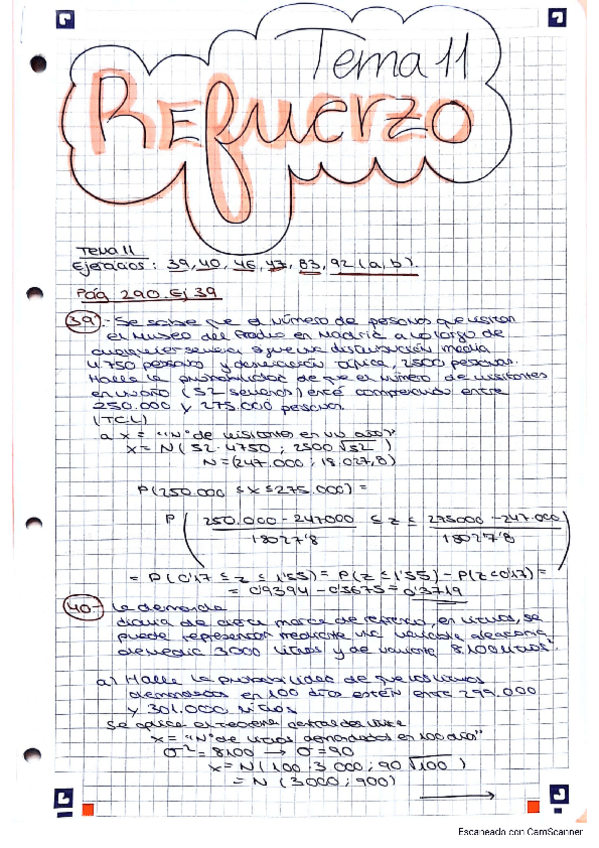 Tema 11
REFuerzo
Tema 11
Ejercicios: 39, 40, 46, 47, 83, 92 (a, b).
Pág 290. Ej 39
39.- Se sabe que el número de personas que visitan
el Museo del Prado en Madrid a lo largo de
cualquier semana sigue una distribución media
4.750 personas y desviación típica, 2500 personas.
Halle la probabilidad de que el número de visitantes
en un año (52 semanas) esté comprendido entre
250.000 y 275.000 personas.
(TCL)
a x = "Nº de visitantes en un año"
x = N (52·4750 ; 2500 √52 )
N = (247.000 ; 18.027,8)
P(250.000 ≤ x ≤ 275.000) =
P ( 250.000 - 247000 / 18027'8 ≤ z ≤ 275000 - 247.000 / 18027'8 )
= P(0'17 ≤ z ≤ 1'55) = P(z ≤ 1'55) - P(z ≤ 0'17) =
= 0'9394 - 0'5675 = 0'3719
40.- La demanda
diaria de cierta marca de refresco, en litros, se
puede representar mediante una variable aleatoria,
de media 3000 litros y de varianza 8.100 litros².
a) Halle la probabilidad de que los litros
demandados en 100 días estén entre 299.000
y 301.000 litros
Se aplica el teorema central del límite
x = "Nº de litros demandados en 100 días"
σ² = 8100 → σ = 90
x = N (100·3.000 ; 90 √100 )
= N (3000 ; 900)
Escaneado con CamScanner